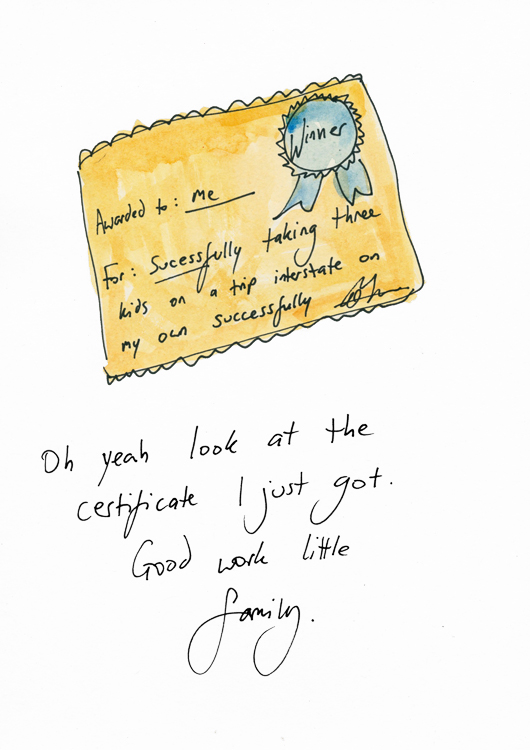 Winner
Awarded to: me
For: Sucessfully taking three
kids on a trip interstate on
my own successfully
Oh yeah look at the
certificate I just got.
Good work little
family.